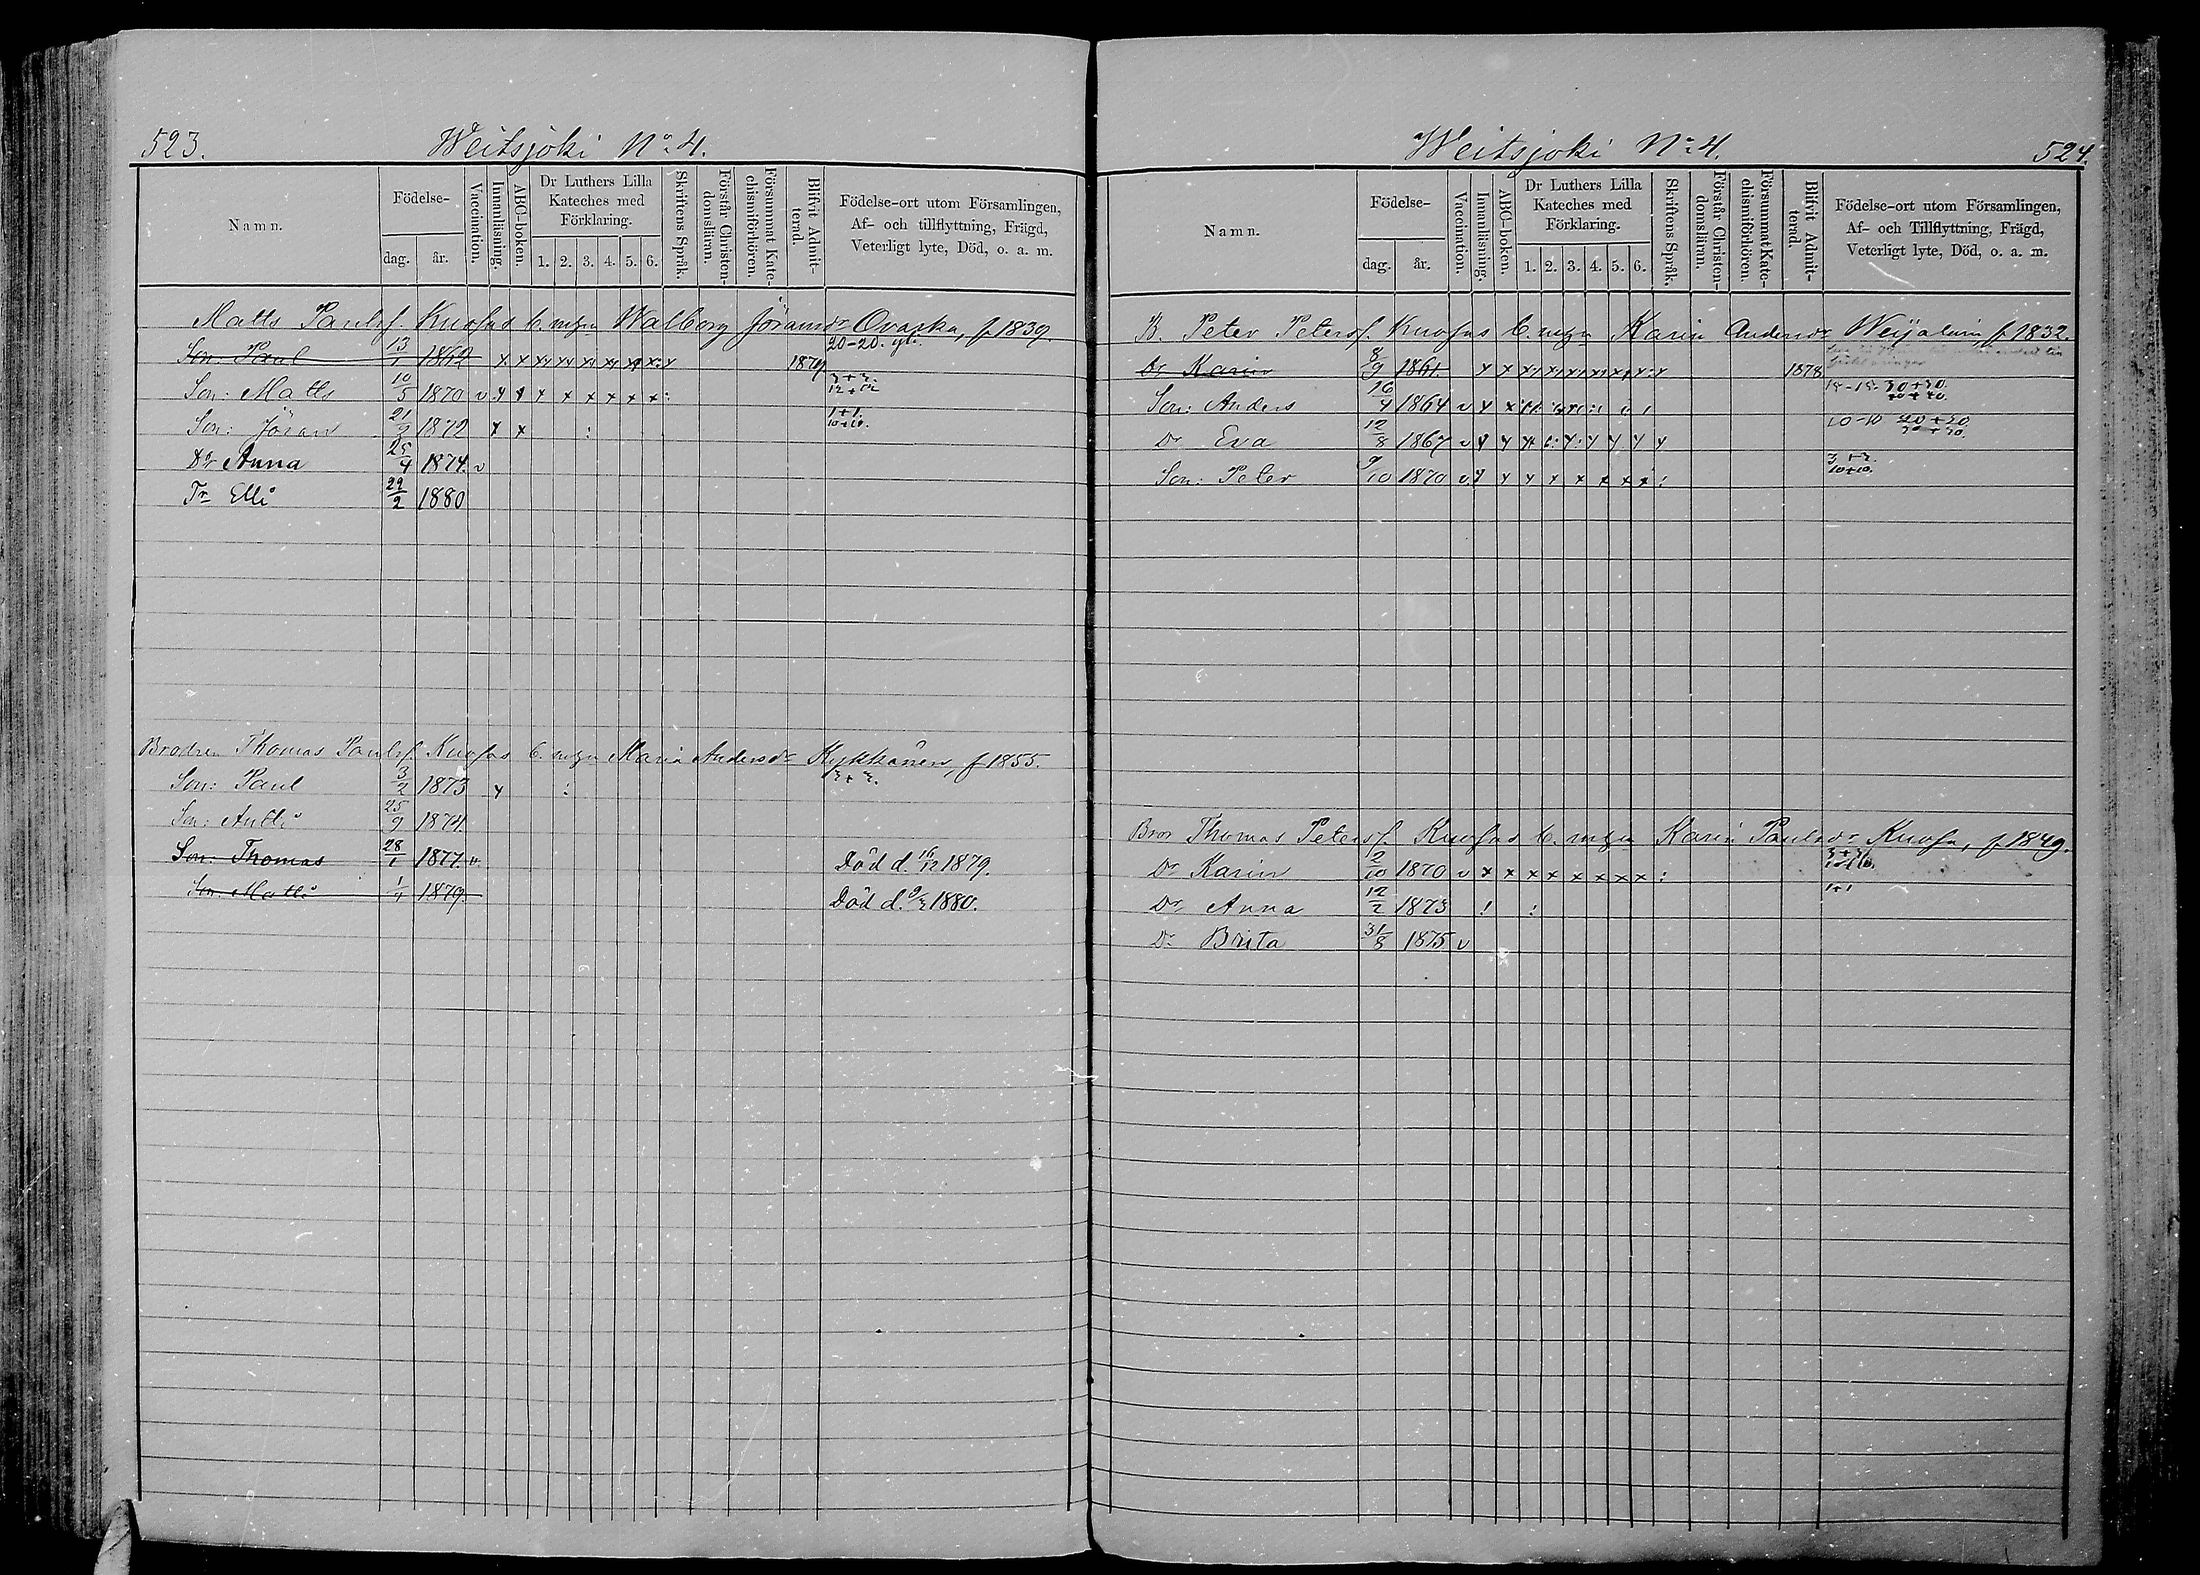 523. Weitsjoki No 4.
Namn. Födelse- dag. år. Vaccination. Innanläsning. ABC-boken. Dr Luthers Lilla Kateches med Förklaring. 1. 2. 3. 4. 5. 6. Skriftens Språk. Förstår Christendomsläran. Försummat Katechismiförhören. Blifvit Admitterad. Födelse-ort utom Församlingen, Af- och tillflyttning, Frägd, Veterligt lyte, Död, o. a. m.
Matts Paulsf. Kuofas b. m. Walborg Jöransdr Ovaska, f 1839.
Son: Paul 13/1 1862 x x x x x x x x x 1879 20-20.
Son: Matts 10/5 1870 v x x x x x x x x :
Son: Jöran 21/9 1872 x x : 1+1. 10+10.
Dr Anna 25/4 1874. v
Tr Elli 29/2 1880
Brodren Thomas Paulsf. Kuofas b. m. Maria Andersdr Kykkänen, f 1855.
Son: Paul 3/2 1873 x : 3+3.
Son: Antti 25/9 1874
Son: Thomas 28/1 1877. v Död d. 16/12 1879.
Son: Matti 1/4 1879. Död d. 9/3 1880.
Weitsjoki No 4. 524.
Namn. Födelse- dag. år. Vaccination. Innanläsning. ABC-boken. Dr Luthers Lilla Kateches med Förklaring. 1. 2. 3. 4. 5. 6. Skriftens Språk. Förstår Christendomsläran. Försummat Katechismiförhören. Blifvit Admitterad. Födelse-ort utom Församlingen, Af- och Tillflyttning, Frägd, Veterligt lyte, Död, o. a. m.
B. Peter Petersf. Kuofas b. m. Karin Andersdr Weijalain, f 1832.
Dr Karin 8/9 1861. x x x x x x x x x 1878
Son: Anders 16/4 1864 v x x 15-15. 30+30. 40+40.
Dr Eva 12/8 1867 v x x x x x x x x 10-10 20+20. 30+30.
Son: Peter 9/10 1870 v x x x x x x x x : 3+3. 10+10.
Bror Thomas Petersf. Kuofas b. m. Karin Paulsdr Kuofa, f 1849.
Dr Karin 2/10 1870 v x x x x x x x x : 3+3. 10+10.
Dr Anna 12/2 1873 ! : 1+1
Dr Brita 31/8 1875 v